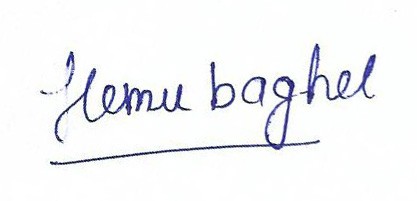 Hemu baghel